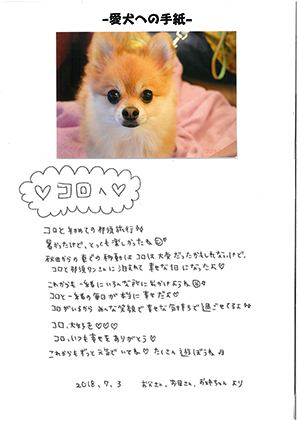 -愛犬への手紙-
♡コロへ♡
コロと初めての那須旅行♪
暑かったけど、とっても楽しかったね
秋田からの車での移動はコロは大変だったかもしれないけど、
コロと那須ワンさんに泊まれて幸せな1日になったよ♡
これからも一緒にいろんな所にお出かけしようね
コロと一緒の毎日が本当に幸せだよ♡
コロがいるからみんな笑顔で幸せな気持ちで過ごせてるよ
コロ、大好き♡♡♡
コロ、いつも幸せをありがとう♡
これからもずっと元気でいてね♡たくさん遊ぼうね♪
2018.7.3 お父さん、お母さん、お姉ちゃんより